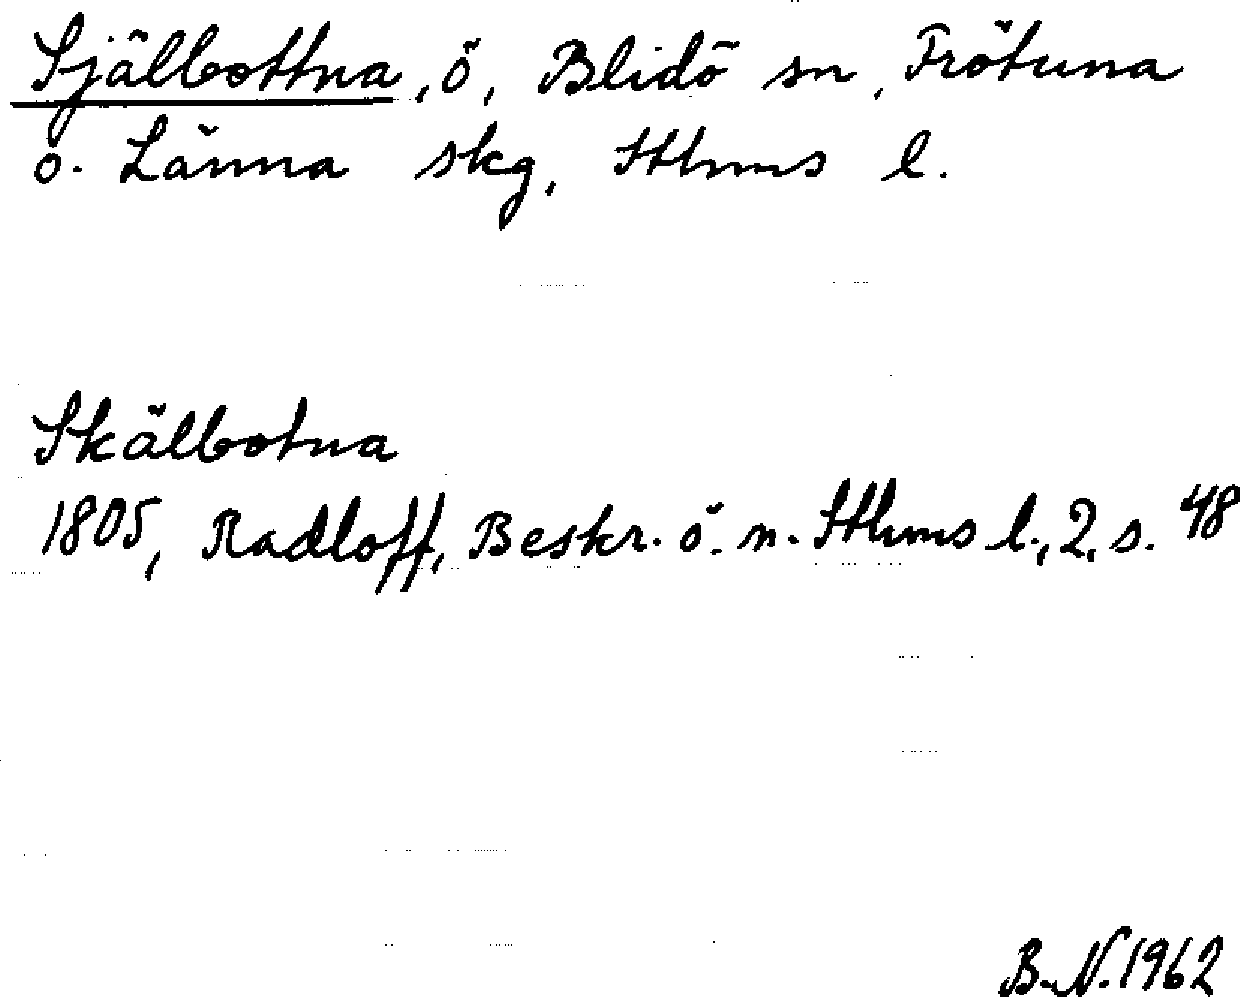 Själbottna, ö, Blidö sn, Frötuna
o. Länna skg, Sthms l.
Skälbotna
1805, Radloff, Beskr. ö. n. Sthms l., 2, s. 48
B.N. 1962